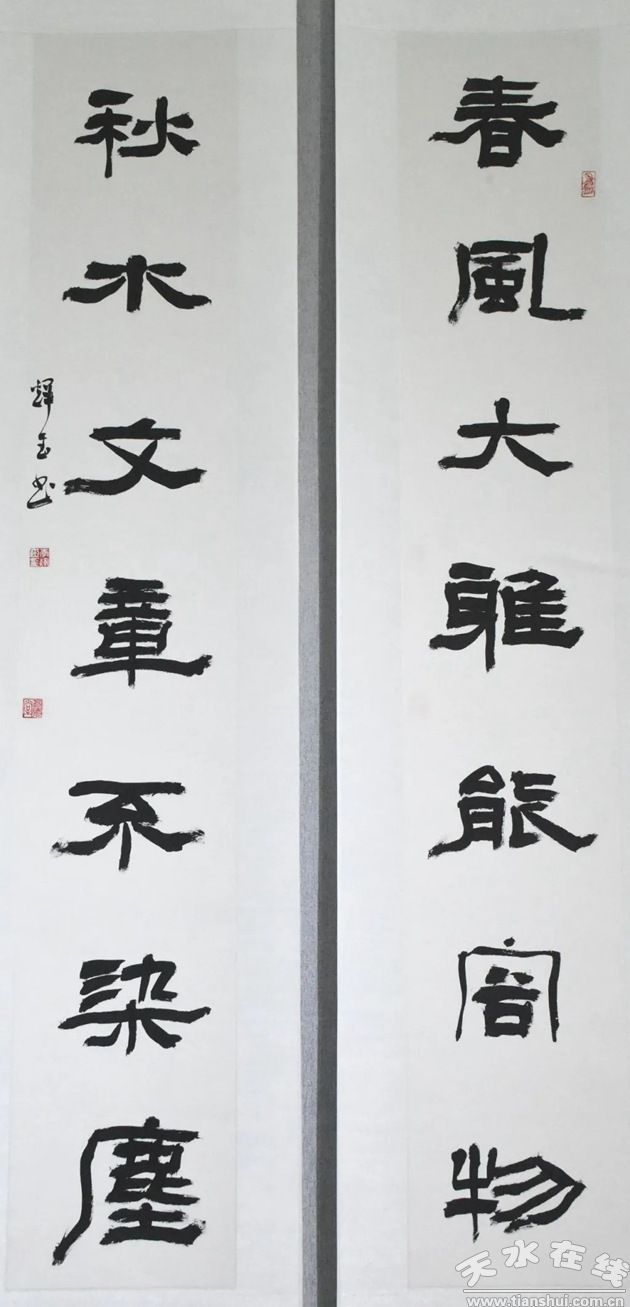 春風大雅能容物
秋水文章不染塵
天水在线
www.tianshui.com.cn